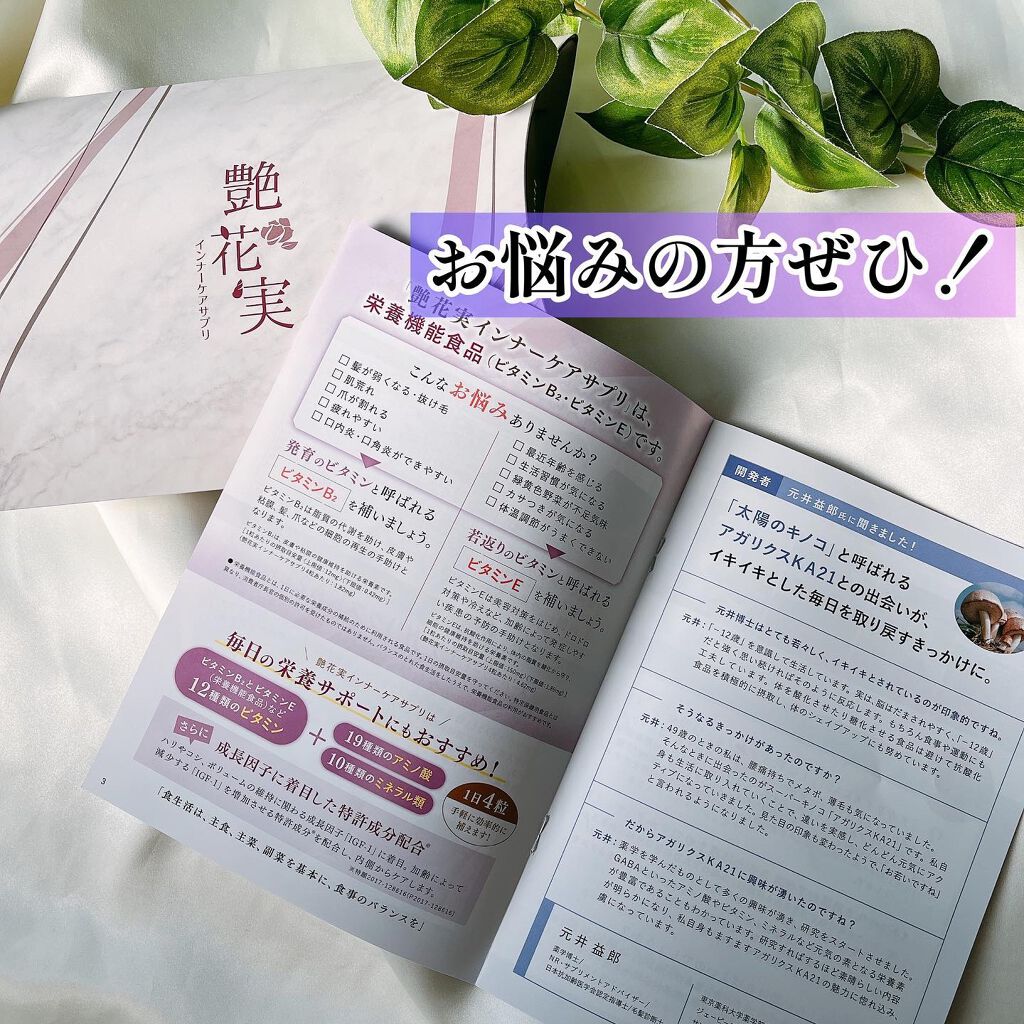 艶花実
インナーケアサプリ
お悩みの方ぜひ！
「艶花実インナーケアサプリ」は、
栄養機能食品(ビタミンB₂・ビタミンE)です。
こんなお悩みありませんか？
□ 髪が弱くなる・抜け毛
□ 肌荒れ
□ 爪が割れる
□ 疲れやすい
□ 口内炎・口角炎ができやすい
□ 最近年齢を感じる
□ 生活習慣が気になる
□ 緑黄色野菜が不足気味
□ カサつきが気になる
□ 体温調節がうまくできない
発育のビタミンと呼ばれる
ビタミンB₂を補いましょう。
ビタミンB₂は脂質の代謝を助け、皮膚や
粘膜、髪、爪などの細胞の再生の手助けと
なります。
ビタミンB₂は、皮膚や粘膜の健康維持を助ける栄養素です。
若返りのビタミンと呼ばれる
ビタミンEを補いましょう。
ビタミンEは美容対策をはじめ、ドロドロ
対策や冷えなど、加齢によって発症しやす
い疾患の予防の手助けとなります。
ビタミンEは、抗酸化作用により、体内の脂質を酸化から守り、
細胞の健康維持を助ける栄養素です。
艶花実インナーケアサプリは
毎日の栄養サポートにもおすすめ！
ビタミンB₂とビタミンE
(栄養機能食品)など
12種類のビタミン
+
19種類のアミノ酸
10種類のミネラル類
1日4粒
手軽に効率的に
補えます！
さらに
成長因子に着目した特許成分配合※
ハリやコシ、ボリュームの維持に関わる成長因子「IGF-1」に着目。加齢によって
減少する「IGF-1」を増加させる特許成分※を配合し、内側からケアします。
※特願2017-128616(P2017-128616)
「食生活は、主食、主菜、副菜を基本に、食事のバランスを」
3
開発者 元井益郎氏に聞きました！
「太陽のキノコ」と呼ばれる
アガリクスKA21との出会いが、
イキイキとした毎日を取り戻すきっかけに。
元井博士はとても若々しく、イキイキとされているのが印象的ですね。
元井：「-12歳」を意識して生活しています。実は、脳はだまされやすく、「-12歳」
だと強く思い続ければそのように反応します。もちろん食事や運動にも
工夫しています。体を酸化させたり糖化させる食品は避けて抗酸化
食品を積極的に摂取し、体のシェイプアップにも努めています。
そうなるきっかけがあったのですか？
元井：49歳のときの私は、腰痛持ちでメタボ、薄毛も気になっていました。
そんなときに出会ったのがスーパーキノコ「アガリクスKA21」です。私自
身も生活に取り入れていくことで、違いを実感し、どんどん元気にアク
ティブになっていきました。見た目の印象も変わったようで、「お若いですね」
と言われるようになりました。
だからアガリクスKA21に興味が湧いたのですね？
元井：薬学を学んだものとして多くの興味が湧き、研究をスタートさせました。
GABAといったアミノ酸やビタミン、ミネラルなど元気の素となる栄養素
が豊富であることもわかっています。研究すればするほど素晴らしい内容
が明らかになり、私自身もますますアガリクスKA21の魅力に惚れ込み、
虜になっています。
元井 益郎
薬学博士/
NR・サプリメントアドバイザー/
日本抗加齢医学会認定指導士/毛髪診断士
東京薬科大学薬学部